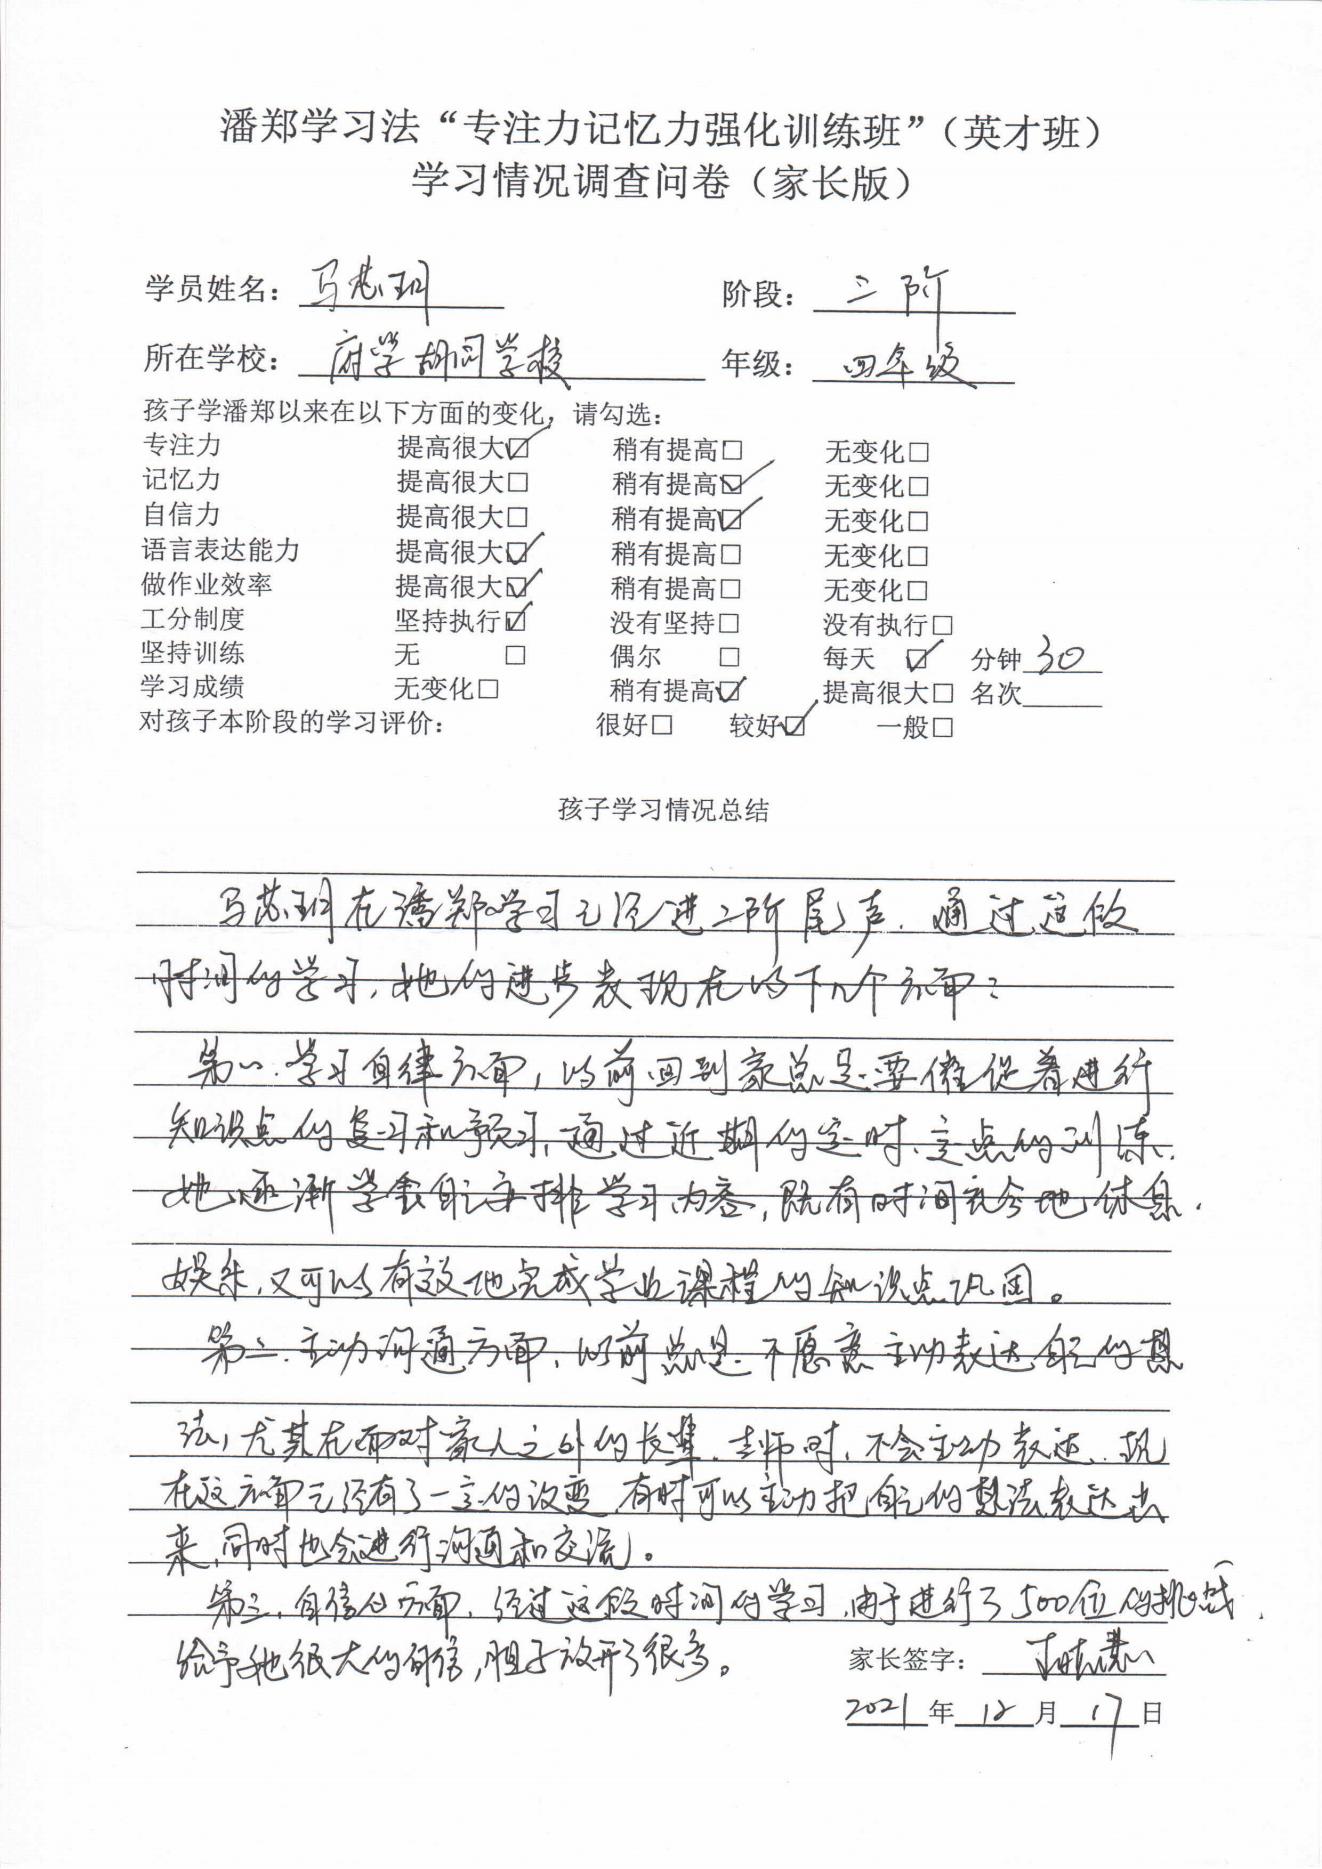 潘郑学习法“专注力记忆力强化训练班”（英才班）
学习情况调查问卷（家长版）
学员姓名：马苏玥 阶段：二阶
所在学校：府学胡同学校 年级：四年级
孩子学潘郑以来在以下方面的变化，请勾选：
专注力 提高很大☑ 稍有提高□ 无变化□
记忆力 提高很大□ 稍有提高☑ 无变化□
自信力 提高很大□ 稍有提高☑ 无变化□
语言表达能力 提高很大☑ 稍有提高□ 无变化□
做作业效率 提高很大☑ 稍有提高□ 无变化□
工分制度 坚持执行☑ 没有坚持□ 没有执行□
坚持训练 无 □ 偶尔 □ 每天 ☑ 分钟30
学习成绩 无变化□ 稍有提高☑ 提高很大□ 名次
对孩子本阶段的学习评价： 很好□ 较好☑ 一般□
孩子学习情况总结
马苏玥在潘郑学习已经进二阶尾声. 通过这段
时间的学习, 她的进步表现在以下几个方面：
第一. 学习自律方面, 以前回到家总是要催促着进行
知识点的复习和预习, 通过近期的定时、定点的训练.
她逐渐学会自己安排学习内容, 既有时间充分地休息.
娱乐, 又可以有效地完成学业课程的知识点巩固。
第二. 主动沟通方面, 以前总是不愿意主动表达自己的想
法, 尤其在面对家人之外的长辈. 老师时, 不会主动表达. 现
在这方面已经有了一定的改变, 有时可以主动把自己的想法表达出
来, 同时也会进行沟通和交流。
第三, 自信心方面, 经过这段时间的学习, 由于进行了500位的挑战,
给予她很大的自信, 胆子放开了很多。
家长签字：
2021年12月17日